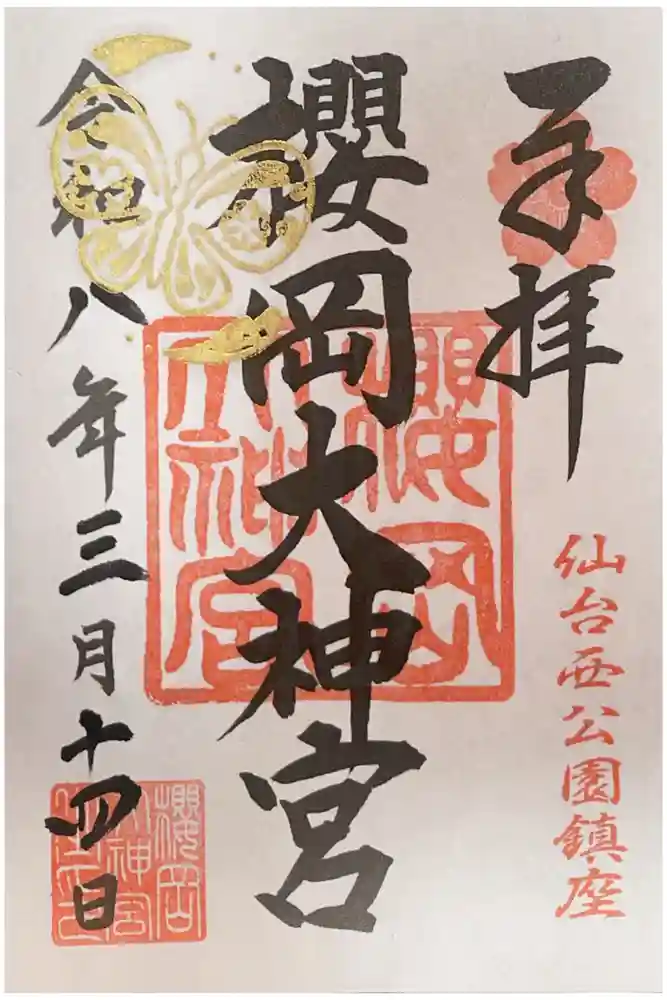 奉拝
仙台西公園鎮座
櫻岡大神宮
櫻岡大神宮
令和八年三月十四日